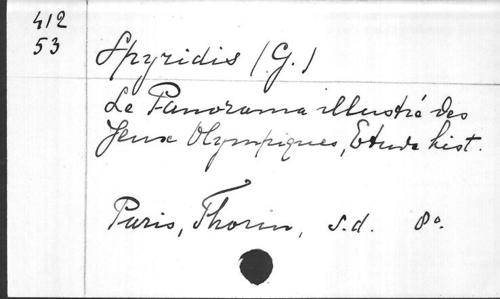 412
53
Spyridis (G.)
Le Panorama illustré des
Jeux Olympiques, Etude hist.
Paris, Thorin, s.d. 8º.